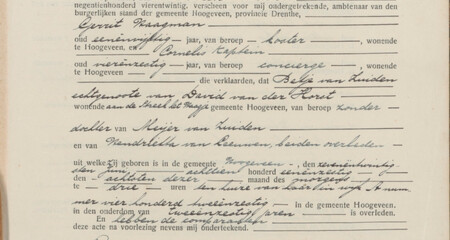 negentienhonderd vierentwintig, verscheen voor mij ondergeteekende, ambtenaar van den
burgerlijken stand der gemeente Hoogeveen, provincie Drenthe,
Gerrit Kaagman
oud eenenvijftig - jaar, van beroep koster, wonende
te Hoogeveen, en Cornelis Kaptein
oud vierenzestig - jaar, van beroep concierge, wonende
te Hoogeveen,
die verklaarden, dat Betje van Zuiden
echtgenoote van David van der Horst
wonende aan de gemeente Hoogeveen, van beroep zonder
dochter van Meijer van Zuiden
en van Hendrietta van Leeuwen, beiden overleden
uit welke zij geboren is in de gemeente Hoogeveen, den zevenentwintig-
sten Juni achttien honderd eenenzestig
den achttienden dezer maand des morgens
te drie uren ten huize van haar in wijk A num-
mer vier honderd tweeënzestig in de gemeente Hoogeveen,
in den ouderdom van tweeënzestig jaren is overleden.
En hebben de comparanten
deze acte na voorlezing nevens mij onderteekend.